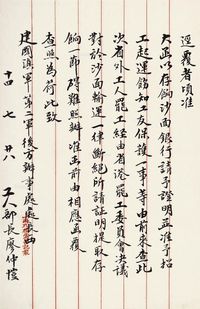 逕覆者頃准
大函以存餉沙面銀行請予證明並準予招
工起運飭知工友保護一事等由前來查此
次省外工人罷工經由省港罷工委員會決議
對於沙面輸運一律斷絕所請証明提取存
餉一節碍難照辦准函前由相應函覆
查照為荷此致
建國滇軍第二軍後方辦事處處長
工人部長廖仲愷
十四 七 廿八